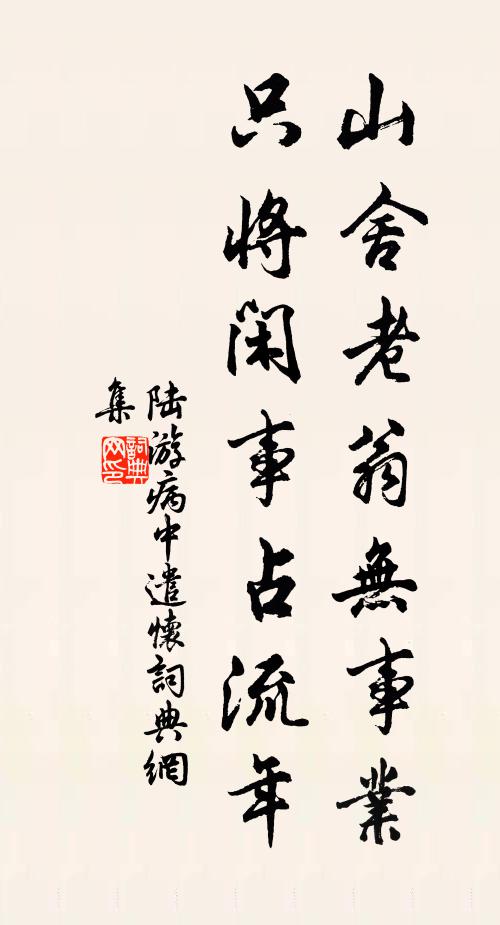 山舍老翁無事業
只將閑事占流年
陸游病中遣懷詞典網
集
詞典
网印